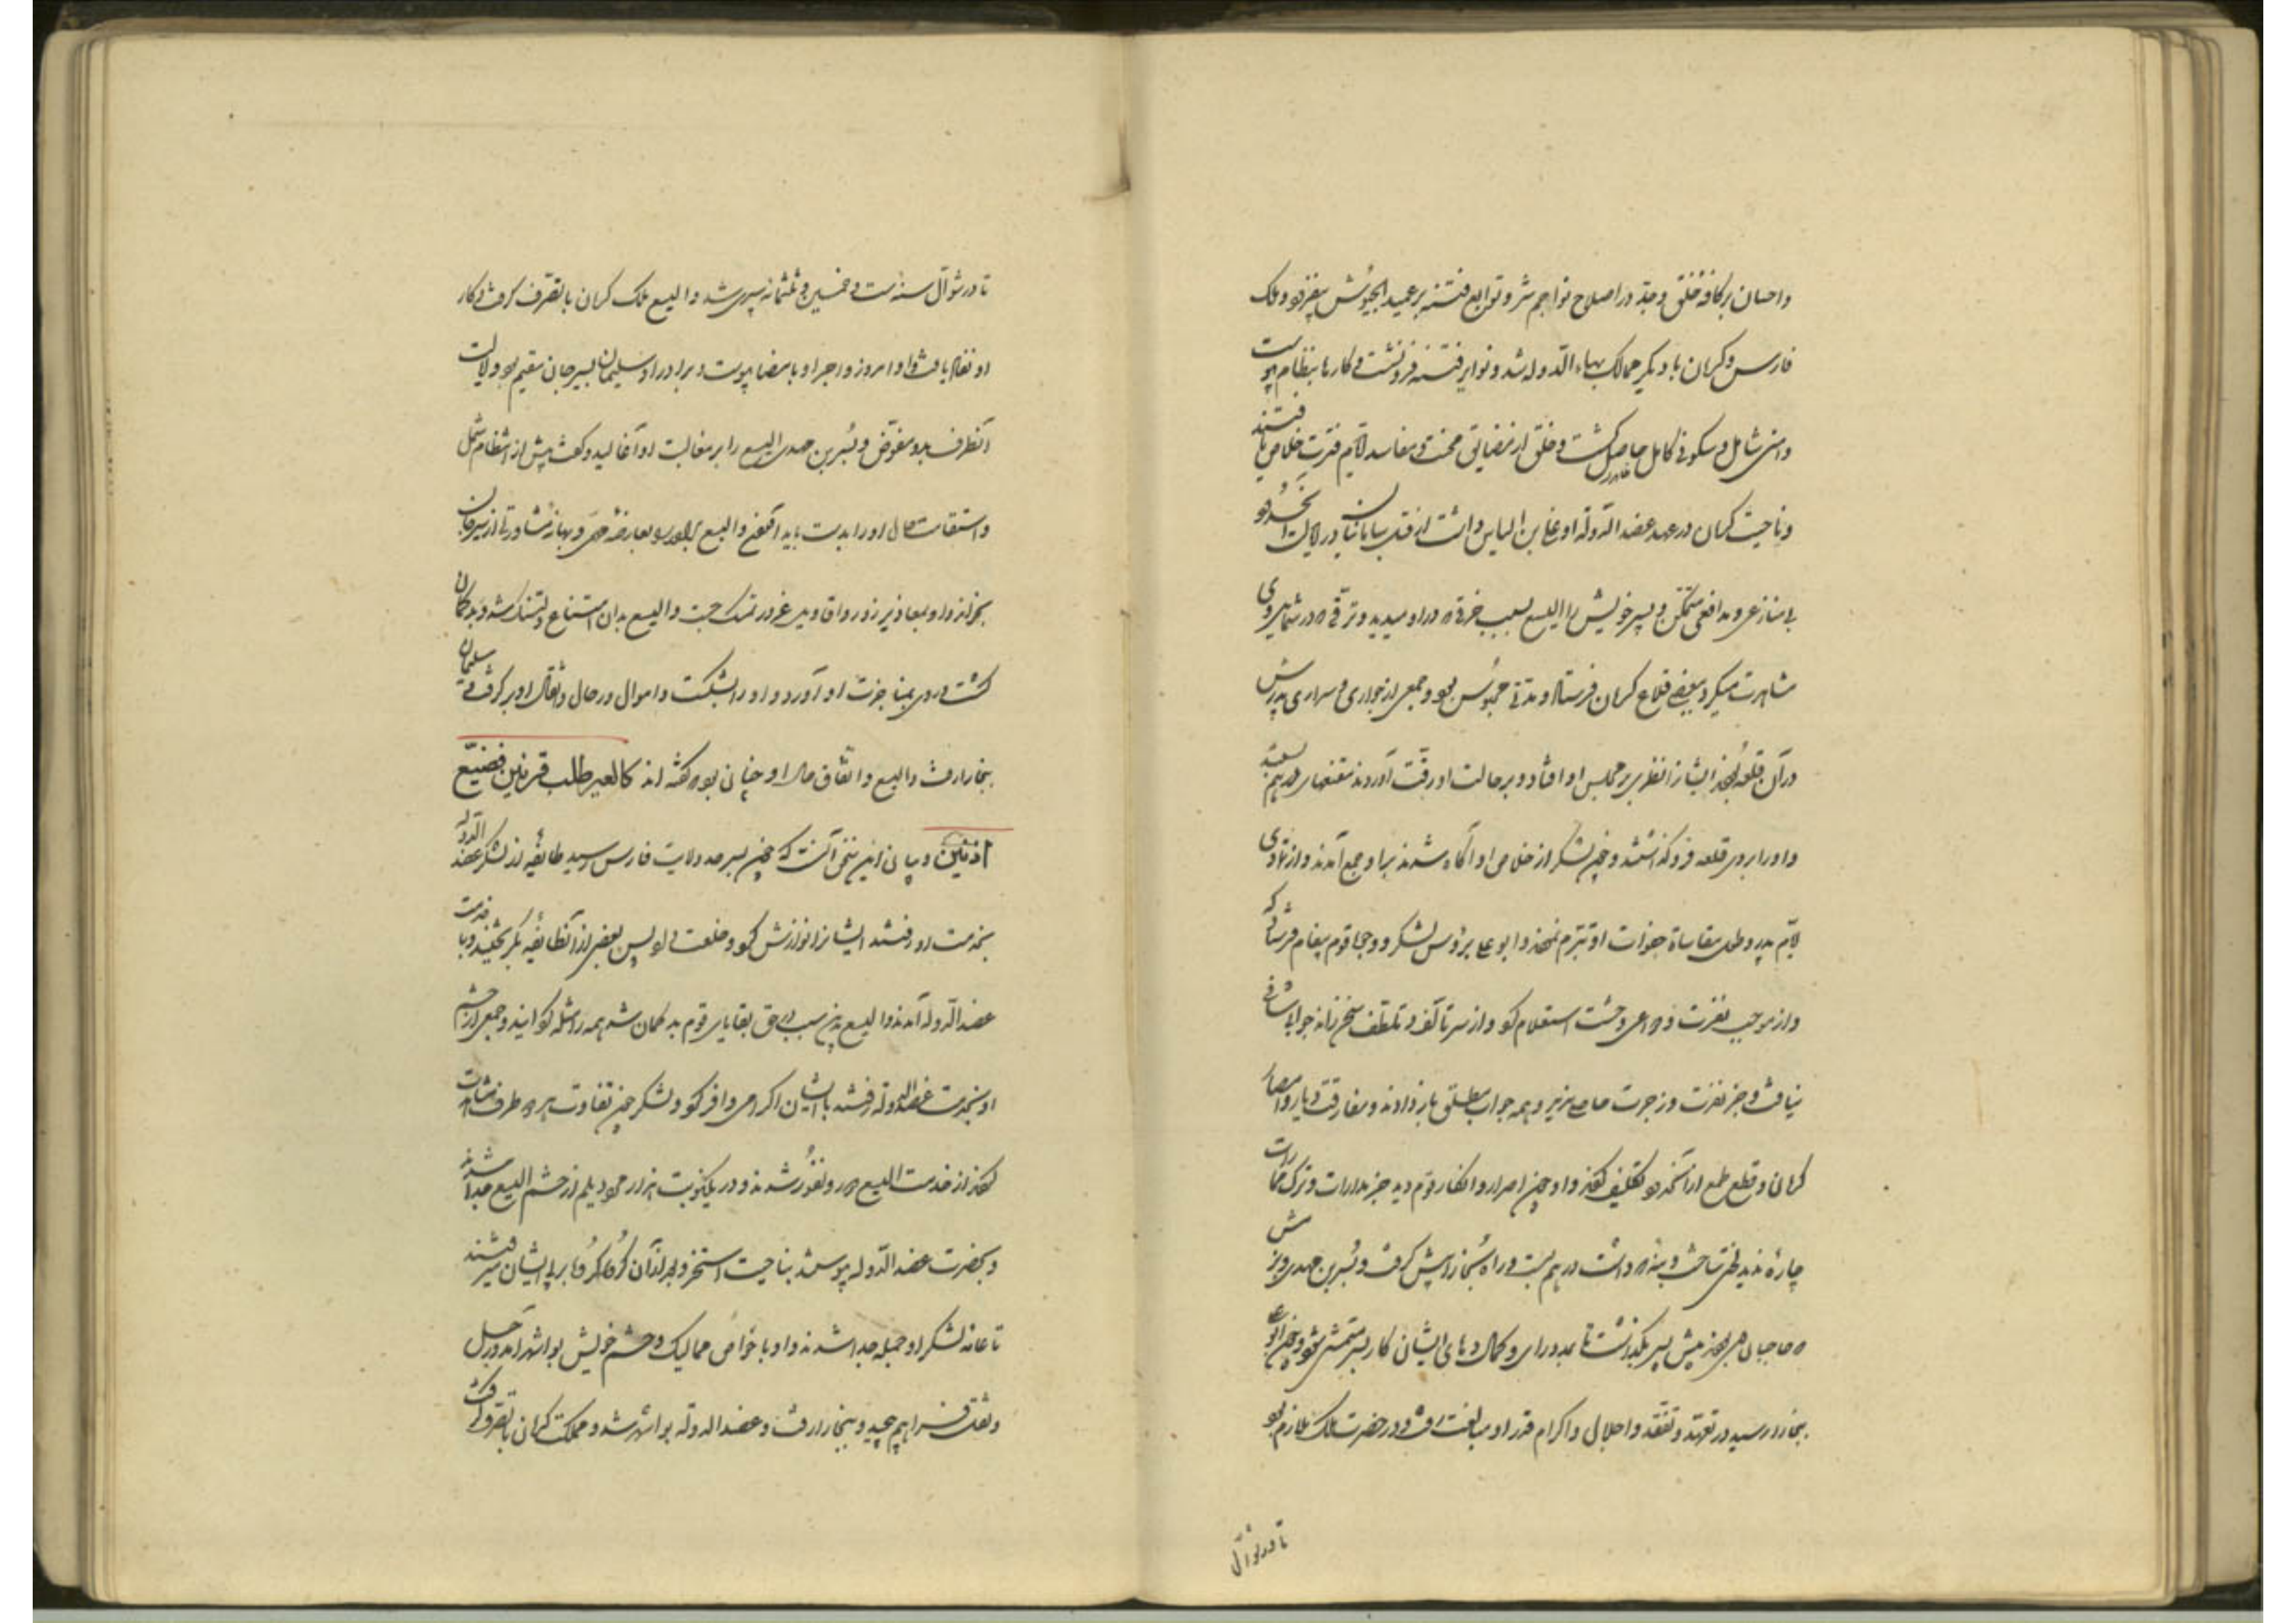 واحسان بر کافه خلق وجد در اصلاح نواجم شر و توابع فتنه بر عمید الجیوش مقرر بود و ملک
فارس وکرمان با دیگر ممالک بهاء الدوله شد و نوایر فتنه فرو نشست و کارها بنظام پیوست
وامنی شامل و سکونی کامل حاصل گشت و خلق از مضایق محنت و مفاسد ایام فترت خلاص یافتند
وناحیت کرمان در عهد عضد الدوله ابو علی بن الیاس داشت از قبل سامانیان و در ولایت آنحدود
بی منازعی و مدافعی متمکن و پسر خویش را الیسع بسبب خرقی که در او میدید و ترقی که در شمایل وی
مشاهدت میکرد ببعضی قلاع کرمان فرستاد و مدتی محبوس بود و جمعی از جواری و سراری پدرش
در آن قلعه بودند ایشانرا نظر بر محابس او افتاد و بر حالت او رقت آوردند مقنعهای خود بهم بستند
و او را بروی قلعه فرو گذاشتند و چون لشکر از خلاص او آگاه شدند بر او جمع آمدند و از تمادی
ایام پدر و طول مقاساة جفوات او تبرم نمودند و ابو علی بر رؤس لشکر و وجوه قوم پیغام فرستاد که
و از موجب نفرت و دواعی وحشت استعلام کرد و از سر تألف و تلطف سخن راند جوابی شافی
نیافت و جز نفرت و زجرت حاصلی ندید و همه جواب مطلق باز دادند و مفارقت دیار و امصار
کرمان و قطع طمع از آنحدود تکلیف کردند و او چون اصرار و انکار قوم دید جز مدارات و ترک ممارات
چارهٔ ندید رختی ساخت و بنه که داشت در هم بست و راه بخارا پیش گرفت و بشر بن مهدی وزیرش
که صاحب بودند پیش پسر بگذاشت تا بمدد رای و کمال دهای ایشان کار پسر متمشی شود و چون ابو علی
ببخارا رسید در تعهد و تفقد و اجلال و اکرام قدر او مبالغت رفت و در حضرت ملک ملازم بود
تا در شوال
تا در شوال سنه ست و خمسین و ثلثمائه سپری شد و الیسع ملک کرمان با تصرف گرفت و کار
او نفاذ یافت و اوامر و زواجر او بامضا پیوست و برادر او سلیمان بسیرجان مقیم بود و ولایت
آنطرف بدو مفوض و بشر بن مهدی الیسع را بر مغالبت او آغالید و گفت پیش از انتظام شمل
و استقامت حال او را بدست باید آوردن و الیسع او را بعارضه مهمی و بهانه مشاورتی از سیرجان
بخواند و او بمعاذیر زور و اقاویل غرور تمسک جست و الیسع بدان امتناع دلتنگ شد و بدگمان
گشت و روی بمناجزت او آورد و او را بشکست و اموال و رحال و اثقال او برگرفت و سلیمان
ببخارا رفت و الیسع را اتفاق حال او چنان بود که گفته اند کالعیر طلب قرنین فضیع
اذنین و بیان این سخن آنست که چون بسرحد ولایت فارس رسید طایفهٔ از لشکر عضد الدوله
بخدمت او رفتند ایشانرا نوازش کرد و خلعت داد پس بعضی از آنطایفه بگریختند و با خدمت
عضد الدوله آمدند و الیسع بدین سبب در حق بقایای قوم بدگمان شد همه را مثله گردانید و جمعی از حشم
او بخدمت عضد الدوله رفتند با ایشان اکرامی وافر کرد و لشکر چون تفاوت هر دو طرف مشاهدت
کردند از خدمت الیسع نفور شدند و در یکنوبت هزار مرد دیلم از حشم الیسع جدا شدند
و بحضرت عضد الدوله پیوستند بناحیت استخر و بعد از آن گروه گروه بر پی ایشان میرفتند
تا عامه لشکر او جمله جدا شدند و او با خواص ممالیک و حشم خویش بواشهر آمد و رحل
و ثقل فراهم چید و ببخارا رفت و عضد الدوله بواشهر شد و مملکت کرمان با تصرف گرفت